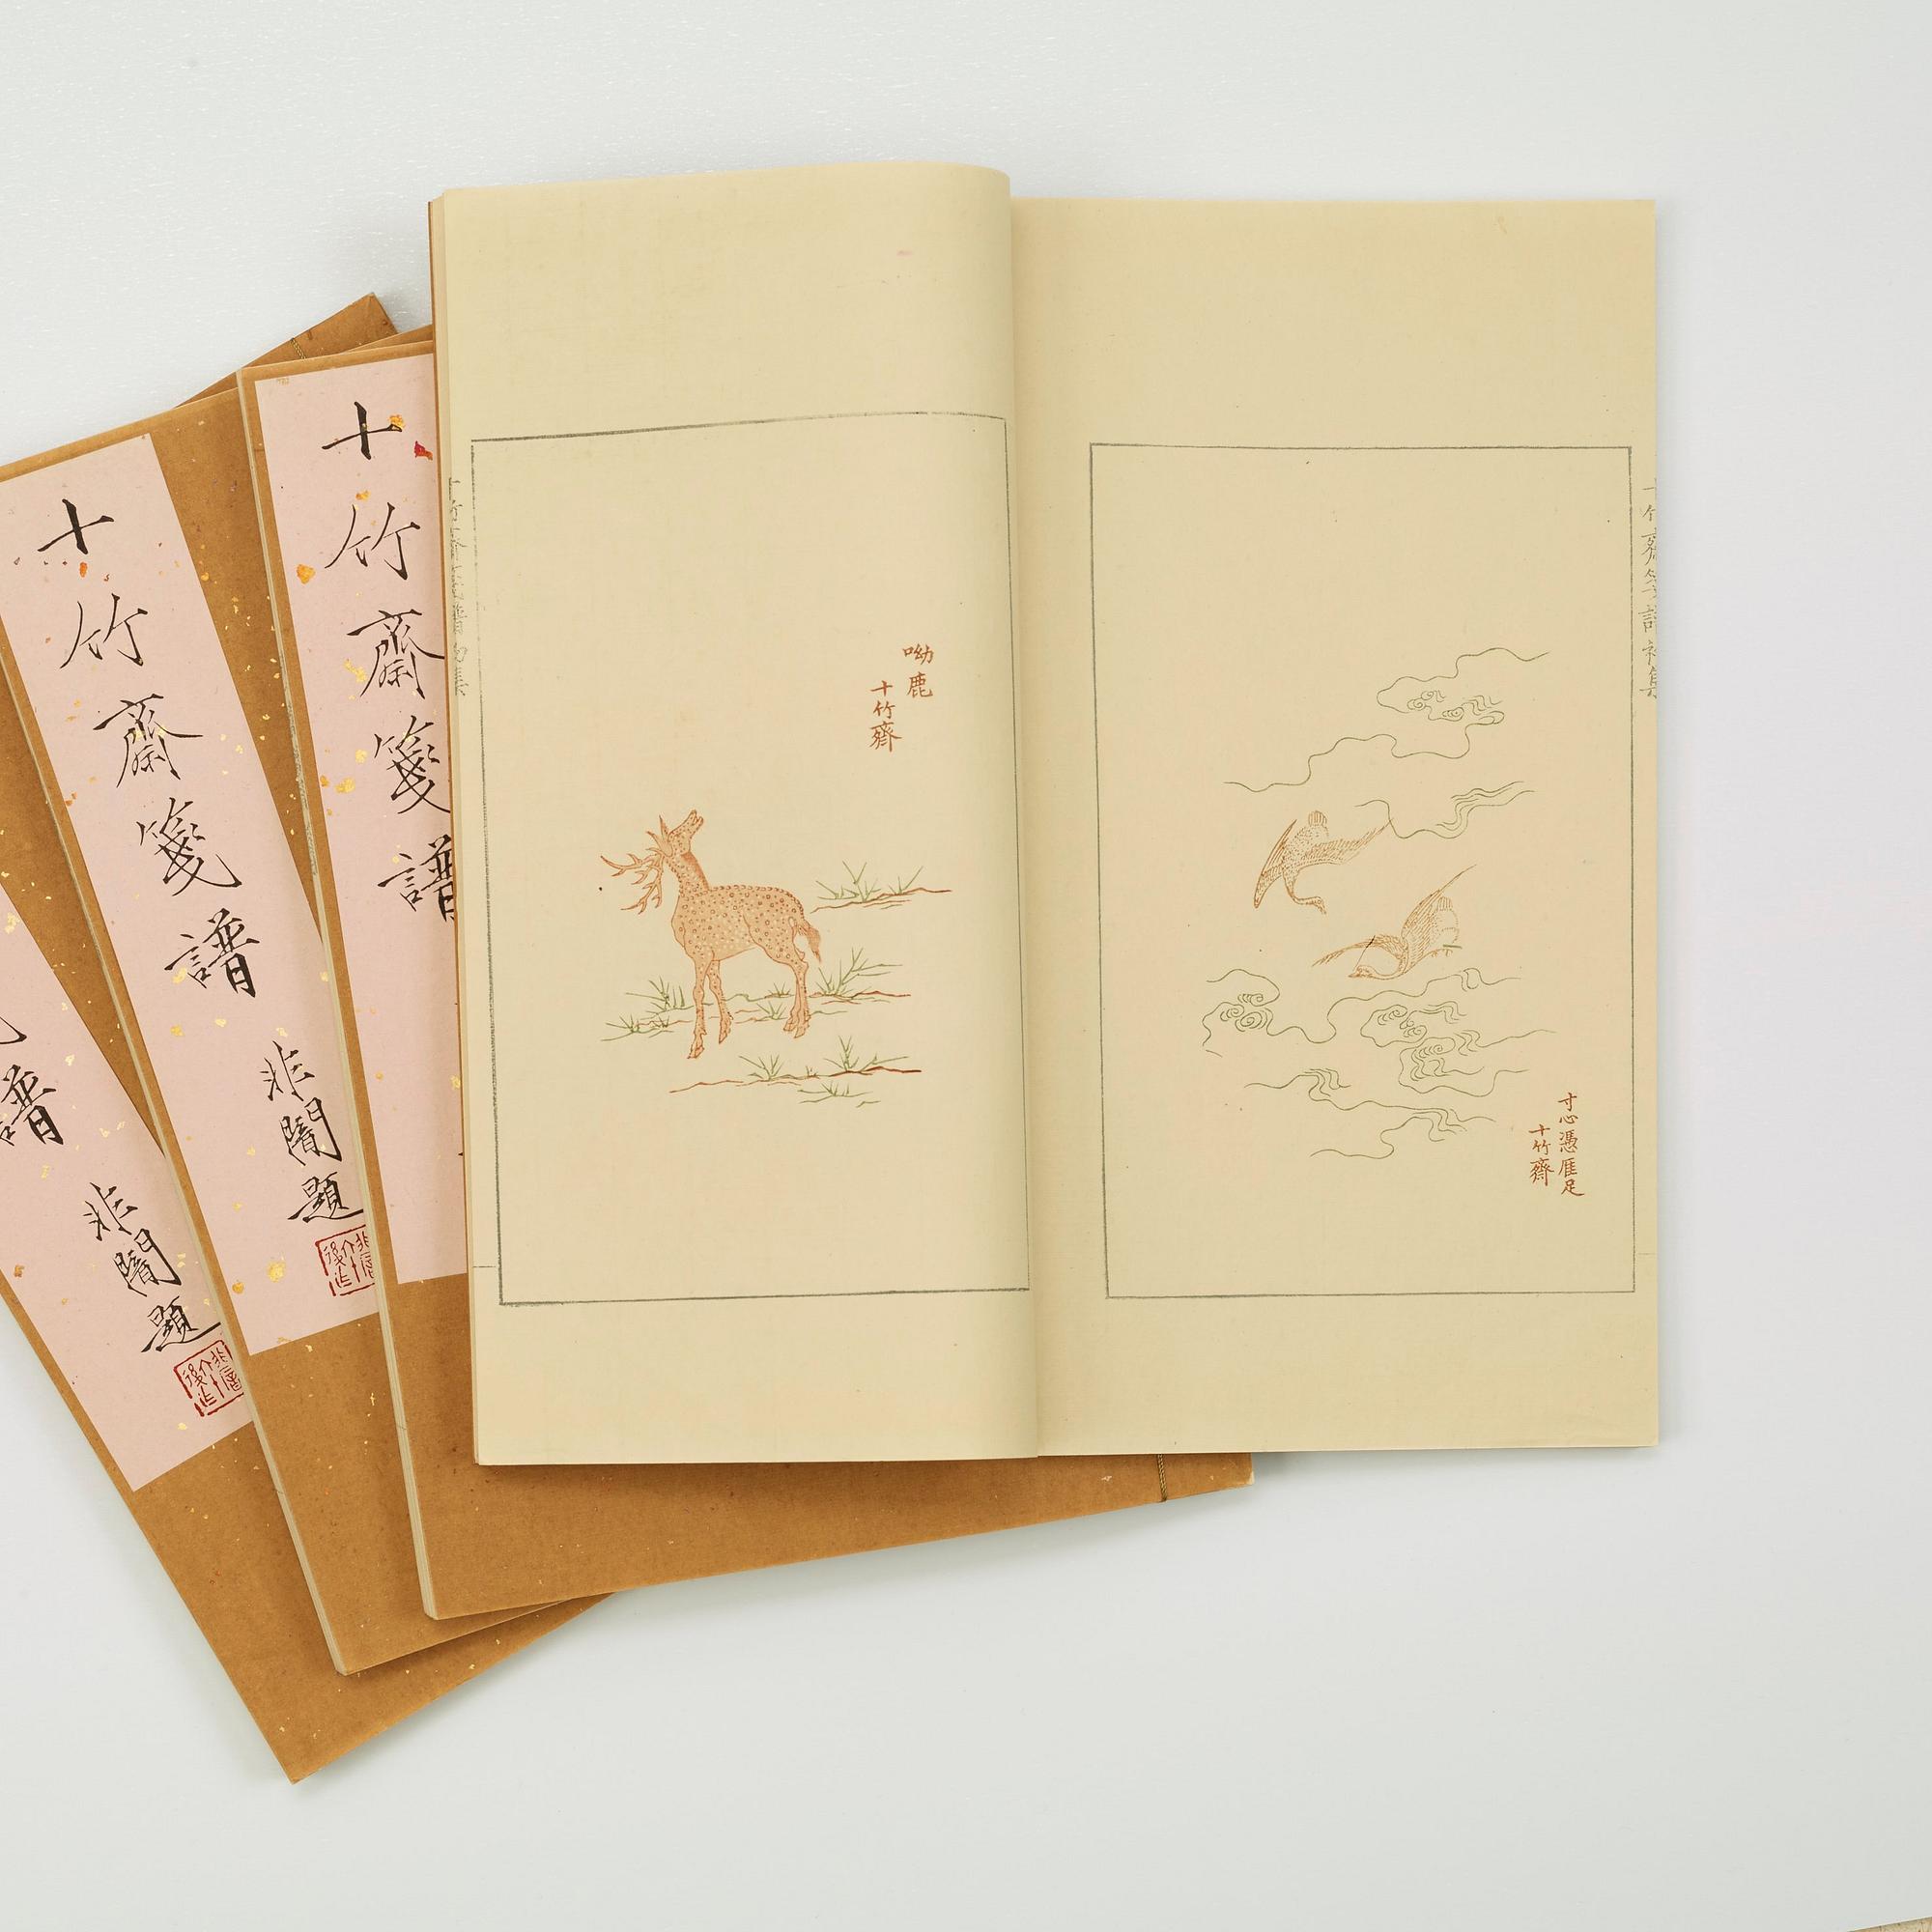 十竹齋箋譜
十竹齋箋譜
非闇題
譜
非闇題
呦鹿
十竹齋
寸心憑雁足
十竹齋
十竹齋箋譜初集
十竹齋箋譜初集